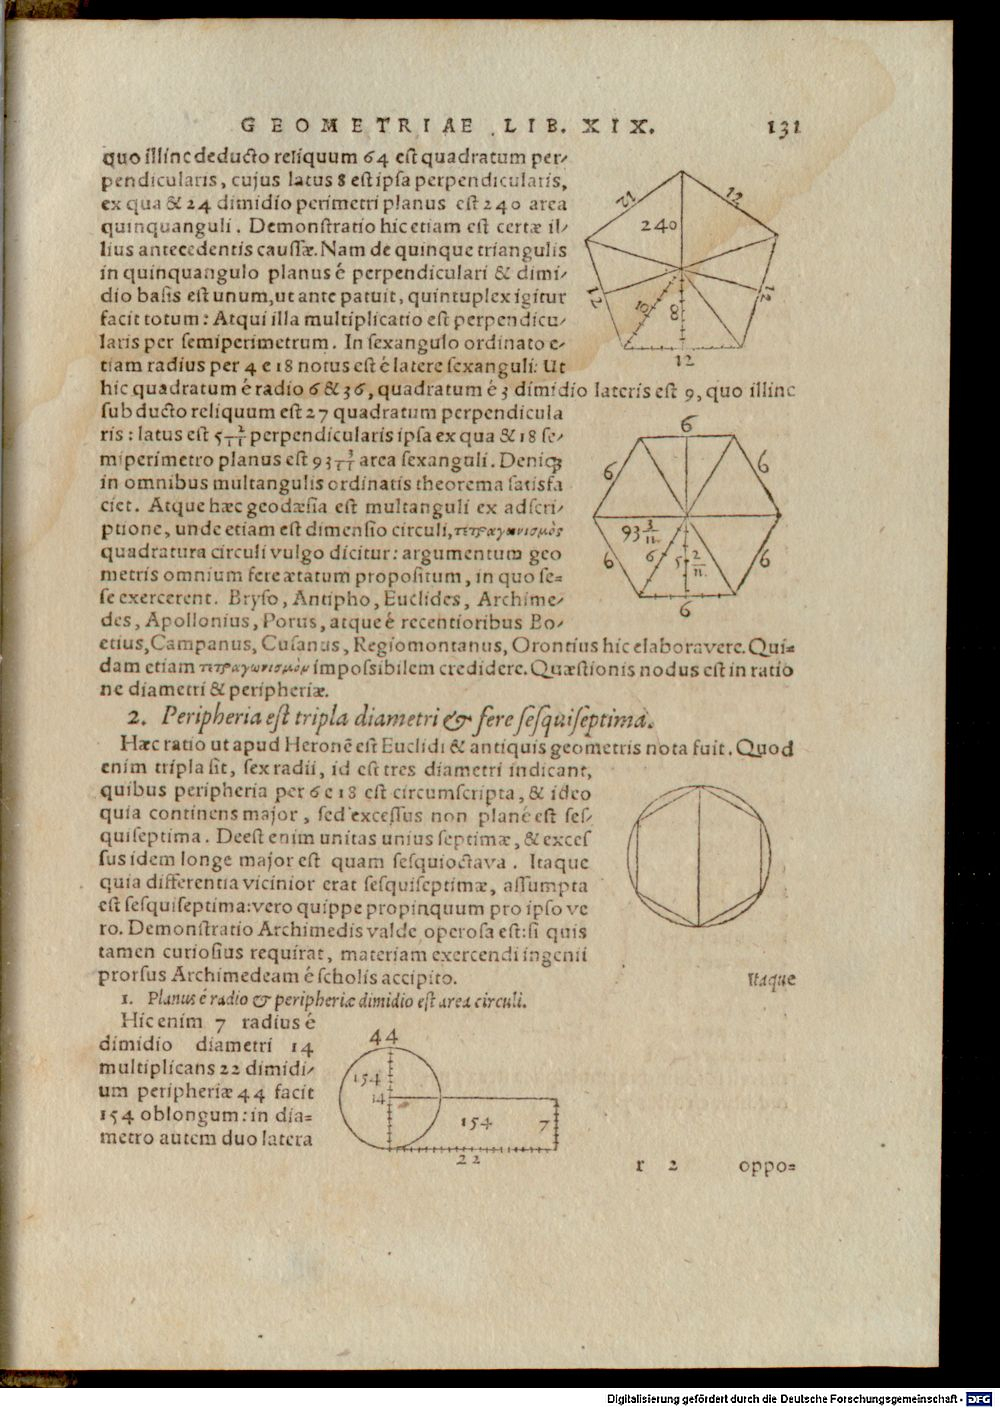 GEOMETRIAE LIB. XIX. 131
quo illinc deducto reliquum 64 est quadratum per-
pendicularis, cujus latus 8 est ipsa perpendicularis,
ex qua & 24 dimidio perimetri planus est 240 area
quinquanguli. Demonstratio hic etiam est certæ il-
lius antecedentis caussæ. Nam de quinque triangulis
in quinquangulo planus é perpendiculari & dimi-
dio basis est unum, ut ante patuit, quintuplex igitur
facit totum: Atqui illa multiplicatio est perpendicu-
laris per semiperimetrum. In sexangulo ordinato e-
tiam radius per 4 e 18 notus est é latere sexanguli: Ut
hic quadratum é radio 6 & 36, quadratum é 3 dimidio lateris est 9, quo illinc
subducto reliquum est 27 quadratum perpendicula
ris: latus est 5 2/11 perpendicularis ipsa ex qua & 18 se-
miperimetro planus est 93 3/11 area sexanguli. Deniq;
in omnibus multangulis ordinatis theorema satisfa
ciet. Atque hæc geodæsia est multanguli ex adscri-
ptione, unde etiam est dimensio circuli, τετραγωνισμὸς
quadratura circuli vulgo dicitur: argumentum geo
metris omnium fere ætatum propositum, in quo se=
se exercerent. Bryso, Antipho, Euclides, Archime-
des, Apollonius, Porus, atque é recentioribus Bo-
etius, Campanus, Cusanus, Regiomontanus, Orontius hic elaboravere. Qui=
dam etiam τετραγωνισμὸν impossibilem credidere. Quæstionis nodus est in ratio
ne diametri & peripheriæ.
2. Peripheria est tripla diametri & fere sesquiseptima.
Hæc ratio ut apud Heronē est Euclidi & antiquis geometris nota fuit. Quod
enim tripla sit, sex radii, id est tres diametri indicant,
quibus peripheria per 6 e 18 est circumscripta, & ideo
quia continens major, sed excessus non plané est ses-
quiseptima. Deest enim unitas unius septimæ, & exces
sus idem longe major est quam sesquioctava. Itaque
quia differentia vicinior erat sesquiseptimæ, assumpta
est sesquiseptima: vero quippe propinquum pro ipso ve
ro. Demonstratio Archimedis valde operosa est: si quis
tamen curiosius requirat, materiam exercendi ingenii
prorsus Archimedeam é scholis accipito.
Itaque
1. Planus é radio & peripheriæ dimidio est area circuli.
Hic enim 7 radius é
dimidio diametri 14
multiplicans 22 dimidi-
um peripheriæ 44 facit
154 oblongum: in dia=
metro autem duo latera
r 2 oppo=
12 12
240
12 12
10 8
12
6
6 6
93 3/11
6 6 5 2/11 6
6
44
154
14
154 7
22
Digitalisierung gefördert durch die Deutsche Forschungsgemeinschaft - DFG